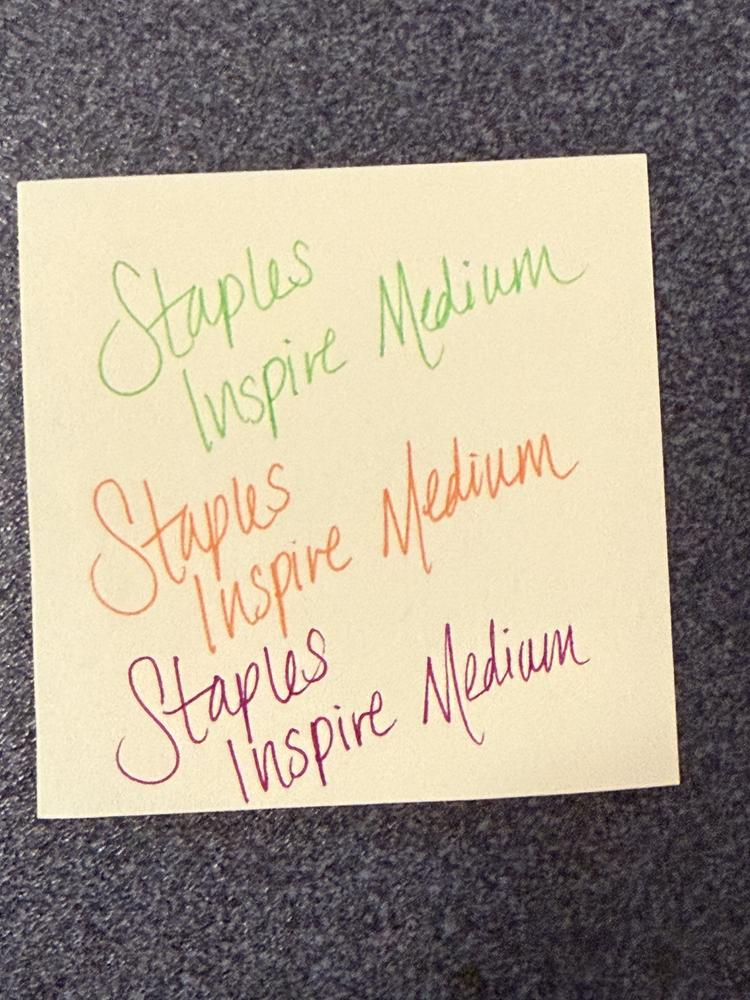 Staples
Inspire Medium
Staples
Inspire Medium
Staples
Inspire Medium